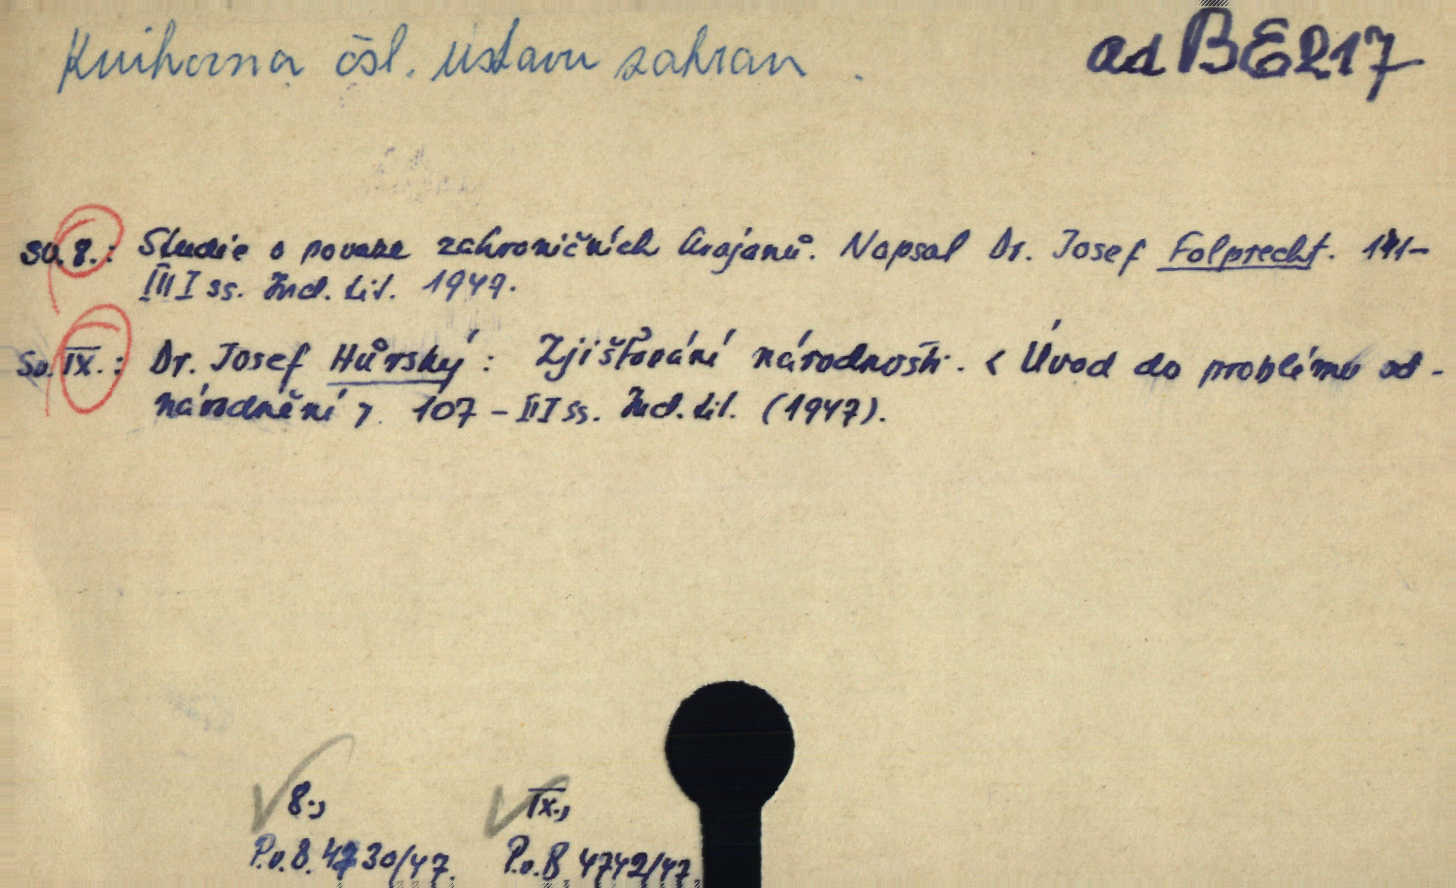 Knihovna čsl. ústavu zahran.
ad BE217
Sv. 8.: Studie o povaze zahraničních krajanů. Napsal Dr. Josef Folprecht. 141-
III I ss. Ind. lit. 1947.
Sv. IX.: Dr. Josef Hůrský: Zjišťování národnosti. < Úvod do problému od-
národnění >. 107 - III ss. Ind. lit. (1947).
8., IX.,
P.v.8. 4730/47. P.v.8. 4742/47.